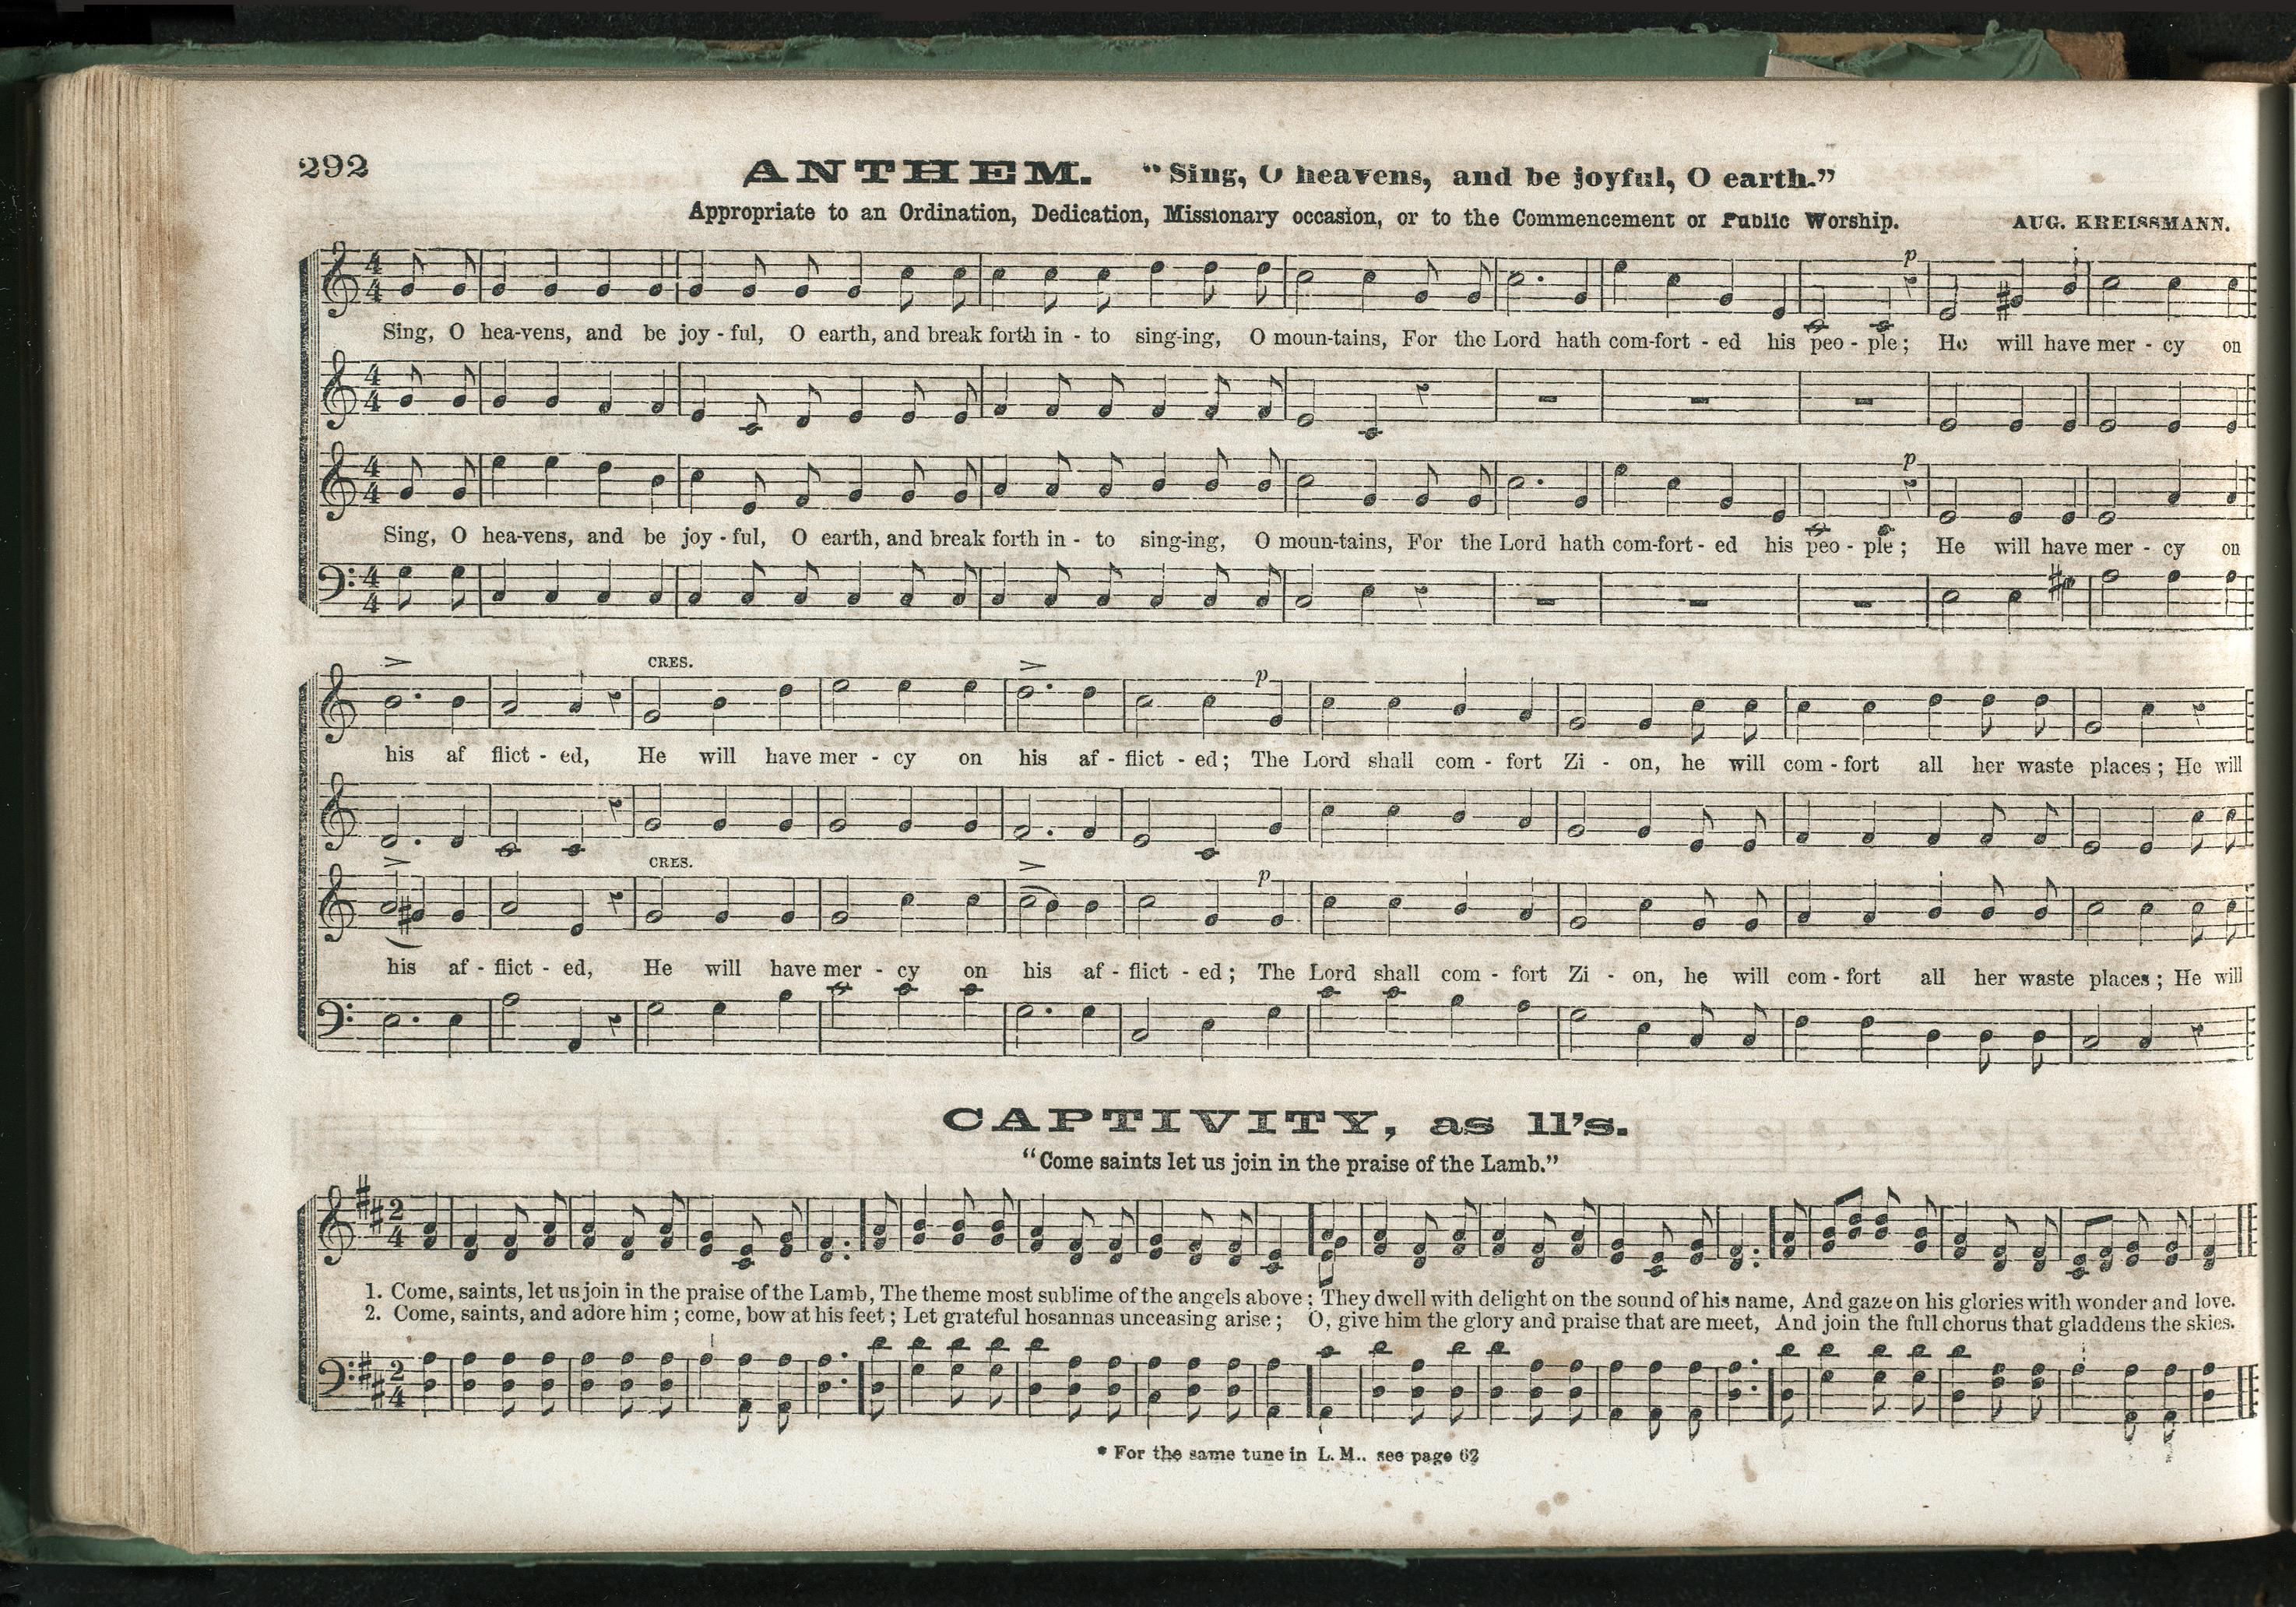 292
ANTHEM. "Sing, O heavens, and be joyful, O earth."
Appropriate to an Ordination, Dedication, Missionary occasion, or to the Commencement of Public Worship.
AUG. KREISSMANN.
p
Sing, O hea-vens, and be joy - ful, O earth, and break forth in - to sing-ing, O moun-tains, For the Lord hath com-fort - ed his peo - ple; He will have mer - cy on
p
Sing, O hea-vens, and be joy - ful, O earth, and break forth in - to sing-ing, O moun-tains, For the Lord hath com-fort - ed his peo - ple; He will have mer - cy on
CRES. p
his af flict - ed, He will have mer - cy on his af - flict - ed; The Lord shall com - fort Zi - on, he will com - fort all her waste places; He will
CRES. p
his af - flict - ed, He will have mer - cy on his af - flict - ed; The Lord shall com - fort Zi - on, he will com - fort all her waste places; He will
CAPTIVITY, as 11's.
"Come saints let us join in the praise of the Lamb."
1. Come, saints, let us join in the praise of the Lamb, The theme most sublime of the angels above; They dwell with delight on the sound of his name, And gaze on his glories with wonder and love.
2. Come, saints, and adore him; come, bow at his feet; Let grateful hosannas unceasing arise; O, give him the glory and praise that are meet, And join the full chorus that gladdens the skies.
* For the same tune in L. M.. see page 62